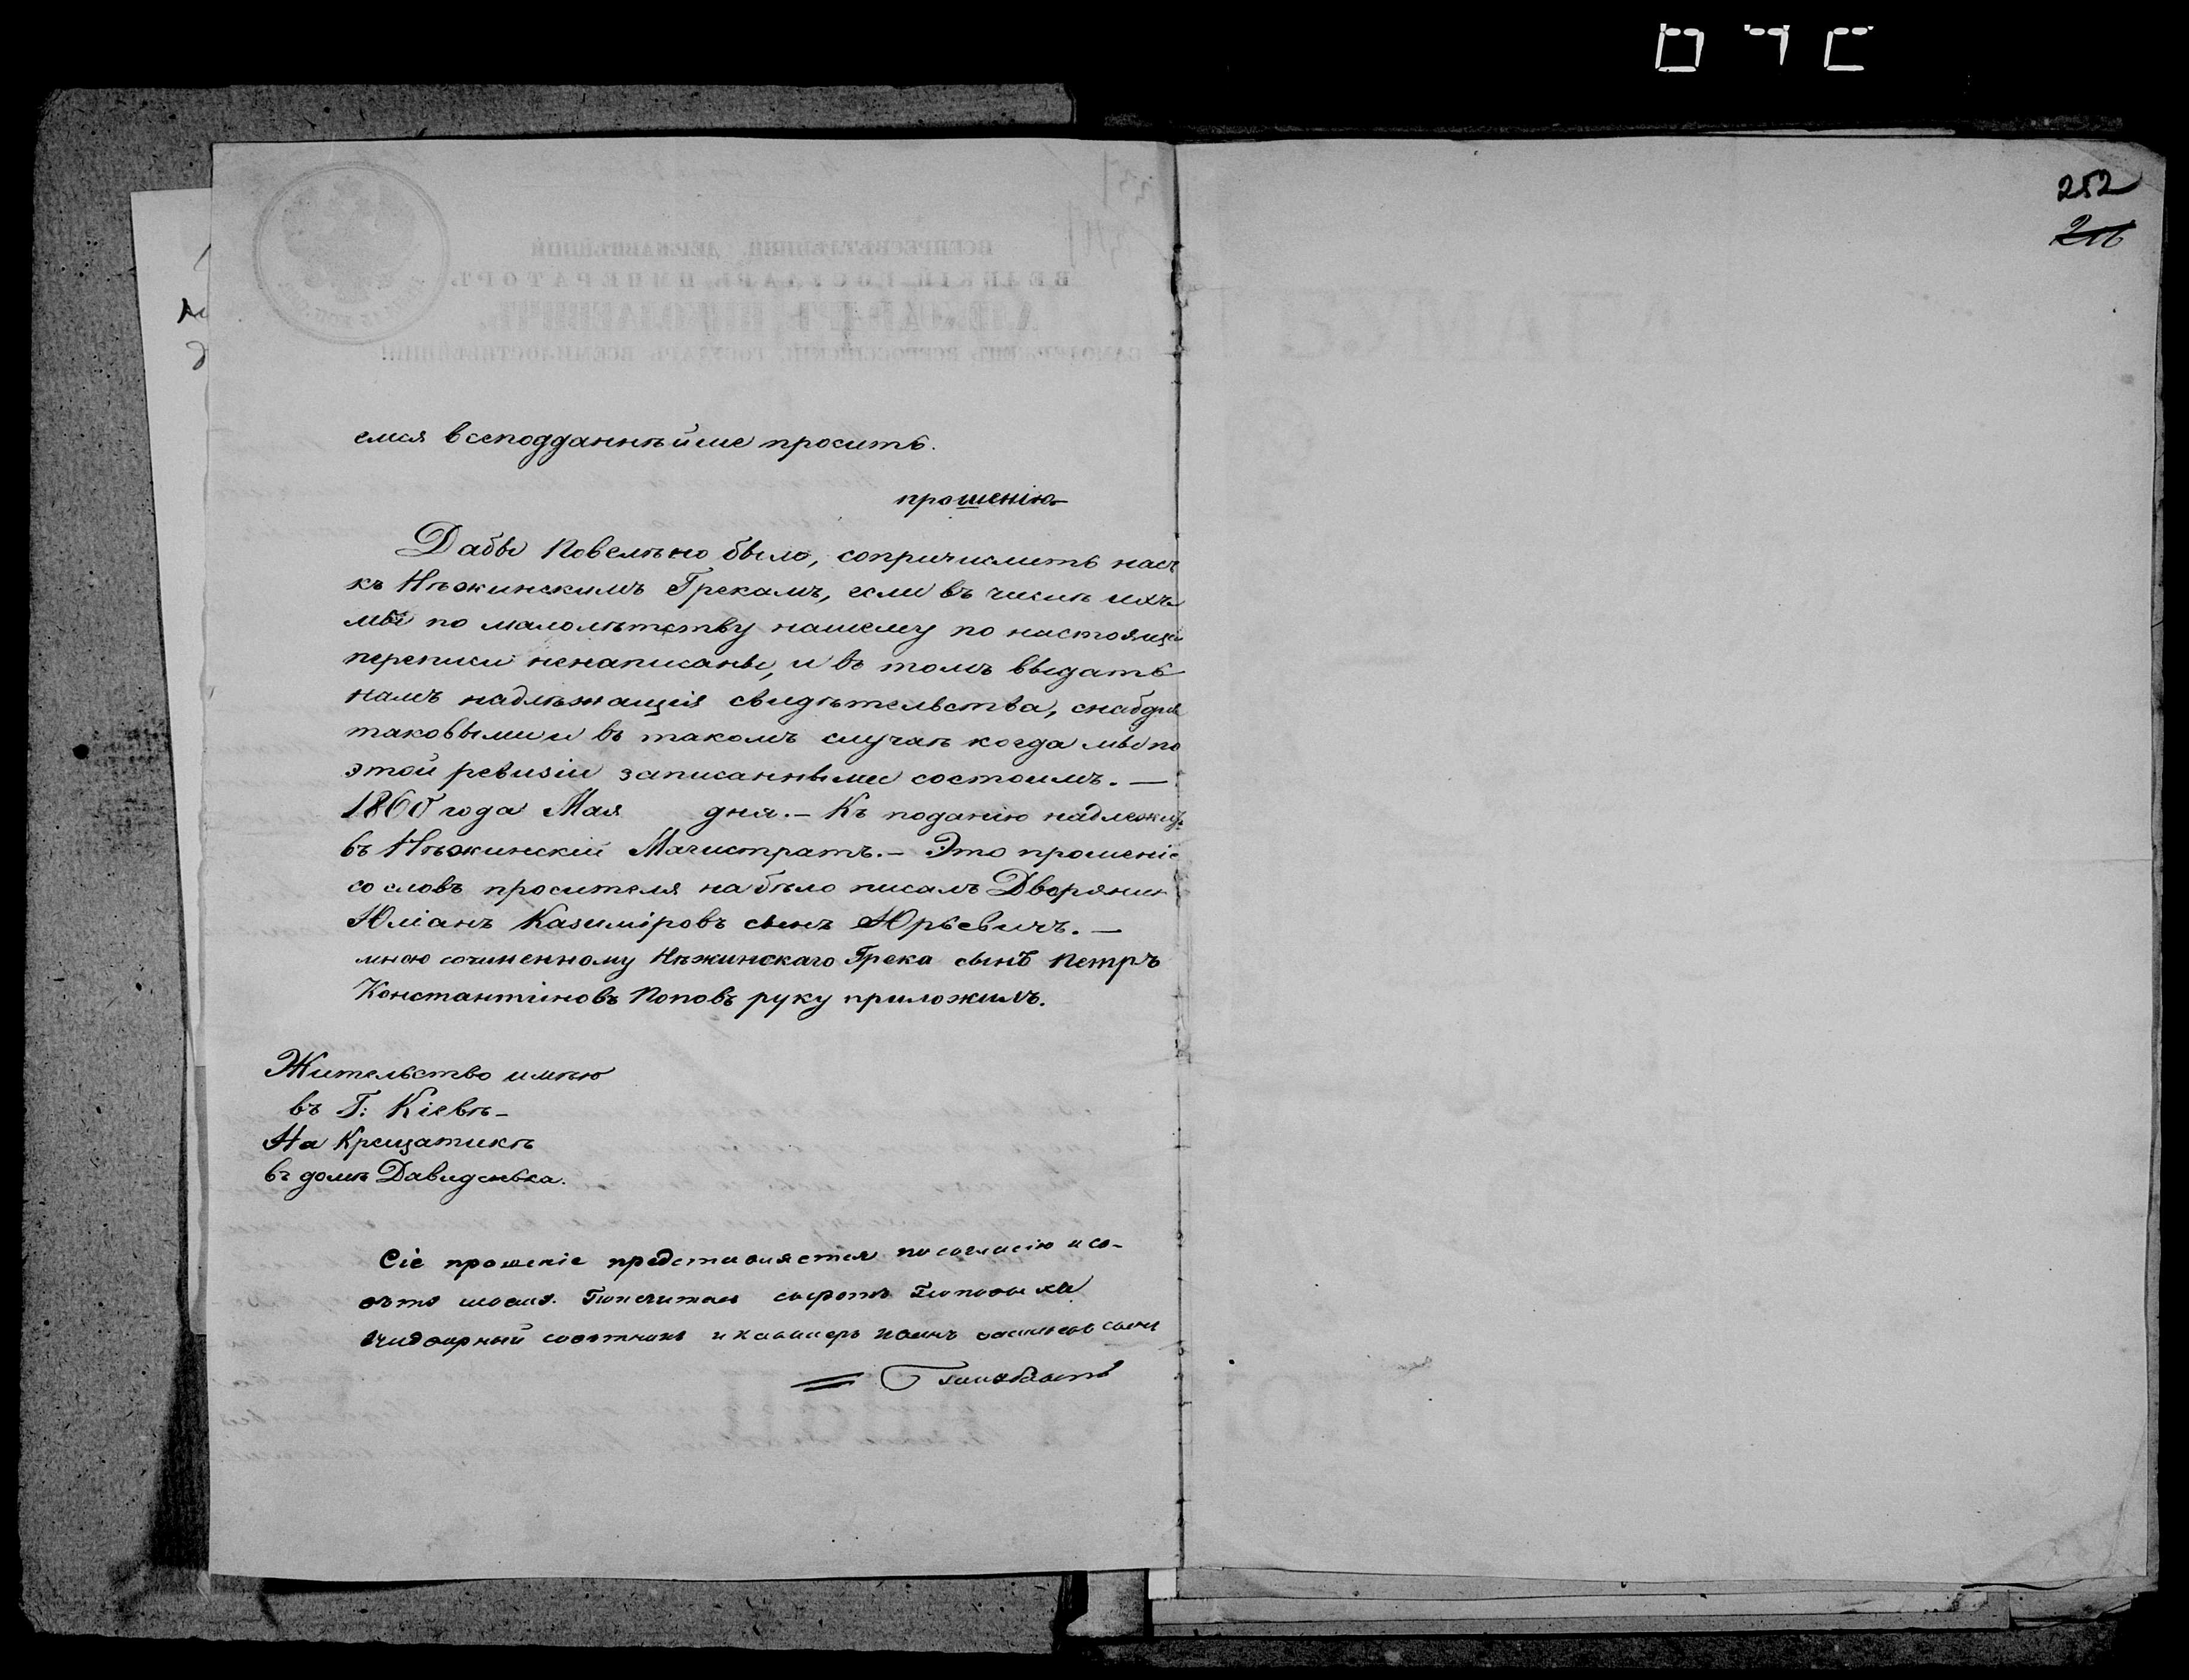 252
емся всеподданнѣйше просить.
прошенію
Дабы Повелѣно было, сопричислить насъ
къ Нѣжинскимъ Грекамъ, если въ числѣ ихъ
мы по малолѣтству нашему по настоящей
переписи ненаписаны, и въ томъ выдать
намъ надлѣжащія свидѣтельства, снабдив
таковыми и въ такомъ случаѣ когда мы по
этой ревизіи записанными состоимъ. —
1860 года Мая дня. — Къ поданію надлежит
въ Нѣжинскій Магистратъ. — Это прошеніе
со словъ просителя на бѣло писалъ Дворянин
Юліанъ Казиміровъ сынъ Юрьевичъ. —
мною сочиненному Нѣжинскаго Грека сынъ Петръ
Константиновъ Поповъ руку приложилъ.
Жительство имѣю
въ Г: Кіевѣ —
На Крещатикѣ
въ домѣ Давиденька.
Сіе прошеніе представляется по согласію и со-
вѣту моему. Попечитель сыротъ
надворный совѣтникъ и кавалеръ сынъ